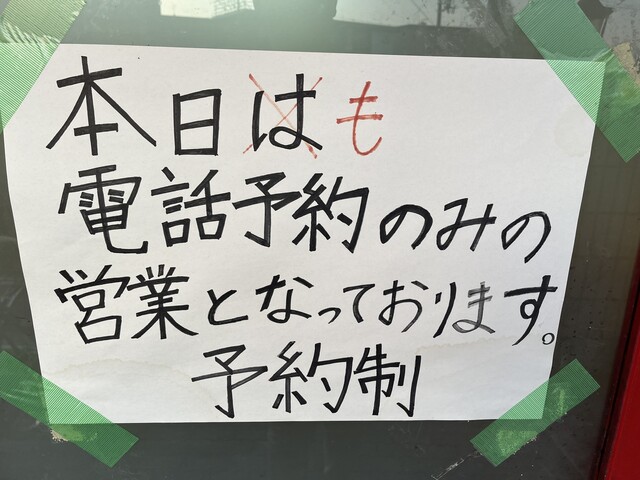 本日はも
電話予約のみの
営業となっております。
予約制